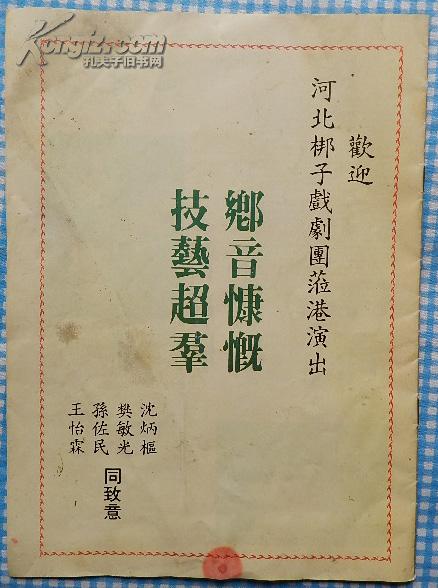 歡迎
河北梆子戲劇團蒞港演出
鄉音慷慨
技藝超羣
沈炳樞
樊敏光
孫佐民
王怡霖
同致意
Kongfz.com
孔夫子旧书网